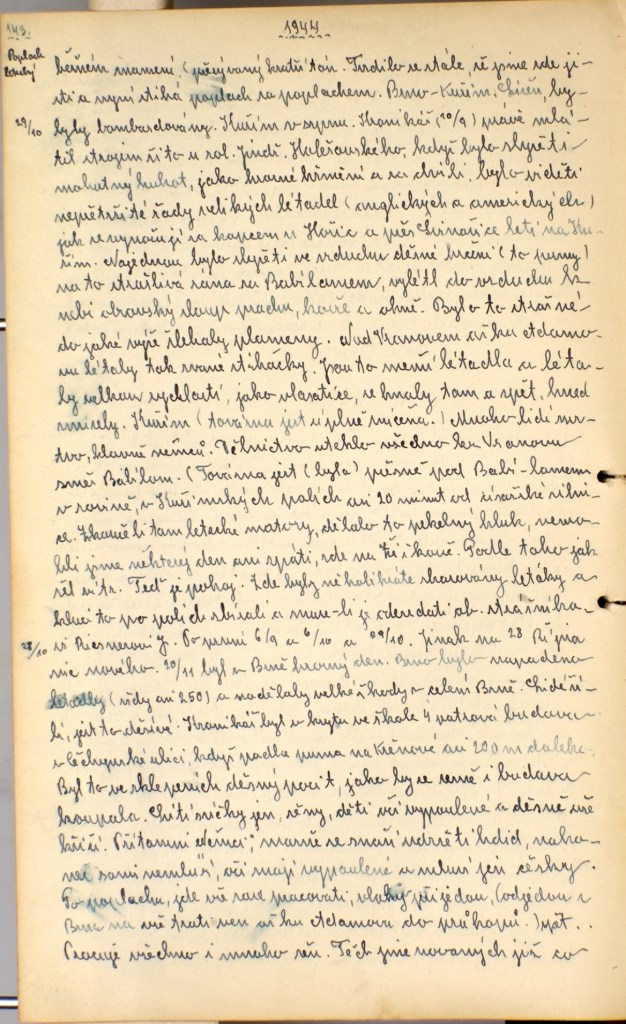 143.
1944
Poplach
letecký
běžném znamení. (přerývaný kratší tón. Tvrdilo se stále, že jsme zde ji-
sti a nyní stíhá poplach za poplachem. Brno-Kuřim, Líšeň, by-
29/10
byly bombardovány. Kuřim v srpnu. Kronikář (20/9) právě mlá-
til strojem žito u rol. Jindř. Holešovského, když bylo slyšeti
mohutný hukot, jako hromé hřmění a za chvíli, bylo viděti
nepřetržité řady velikých létadel (anglických a amerických)
jak se vynořují za kopcem u Hořic a přes Svinošice letí na Ku-
řim. Najednou bylo slyšeti ve vzduchu děsné hučení (to pumy)
na to strašlivá rána za Babí lomem, vylétl do vzduchu k
nebi obrovský sloup prachu, kouře a ohně. Bylo to strašné
do jaké výše šlehaly plameny. Nad Vranovem až ku Adamo-
vu létaly tak zvané stíhačky. Jsou to menší létadla a léta-
ly velkou rychlostí, jako vlasatice, se hnaly tam a zpět, hned
zmizely. Kuřim (továrna jest úplně zničena.) Mnoho lidí mr-
tvo, hlavně němců. Dělnictvo uteklo všechno ku Vranovu
směr Babílom. (Továrna jest (byla) přesně pod Babí-lomem
v rovině, v Kuřimských polích asi 20 minut od císařské silni-
ce. Zkoušeli tam letecké motory, dělalo to pekelný hluk, nemo-
hli jsme některý den ani spáti, zde na 3 i koně. Podle toho jak
šel vítr. Teď je pokoj. Zde byly několikráte shazovány letáky a
kluci to po polích sbírali a museli je odevzdati ob. strážníko-
28/10
vi Riesnerovi J. Po první 6/9 a 6/10 a 29/10. Jinak na 28 Října
nic nového. 20/11 byl v Brně hrozný den. Brno bylo napadeno
letadly (vždy asi 250) a nadělaly velké škody v celém Brně. Lidé ží-
li, jest to děsivé. Kronikář byl v krytu ve škole 4 patrová budova
v Čechyňské ulici, když padla puma na Křenové asi 200 m daleko.
Byl to ve sklepeních děsný pocit, jako by se země i budova
houpala. Svítí svíčky jen, ženy, děti oči vypoulené a děsně vše
křičí. Přítomní Němci, marně se snaží udržeti klid, nako-
nec sami nemluví, oči mají vypoulené a mluví jen česky.
Po poplachu, jde vše zase pracovati, vlaky přijedou, (odjedou z
Brna na vše trati ven až ku Adamovu do průkopů.) zpět..
Pracuje všechno i mnoho žen. Těch jmenovaných již co